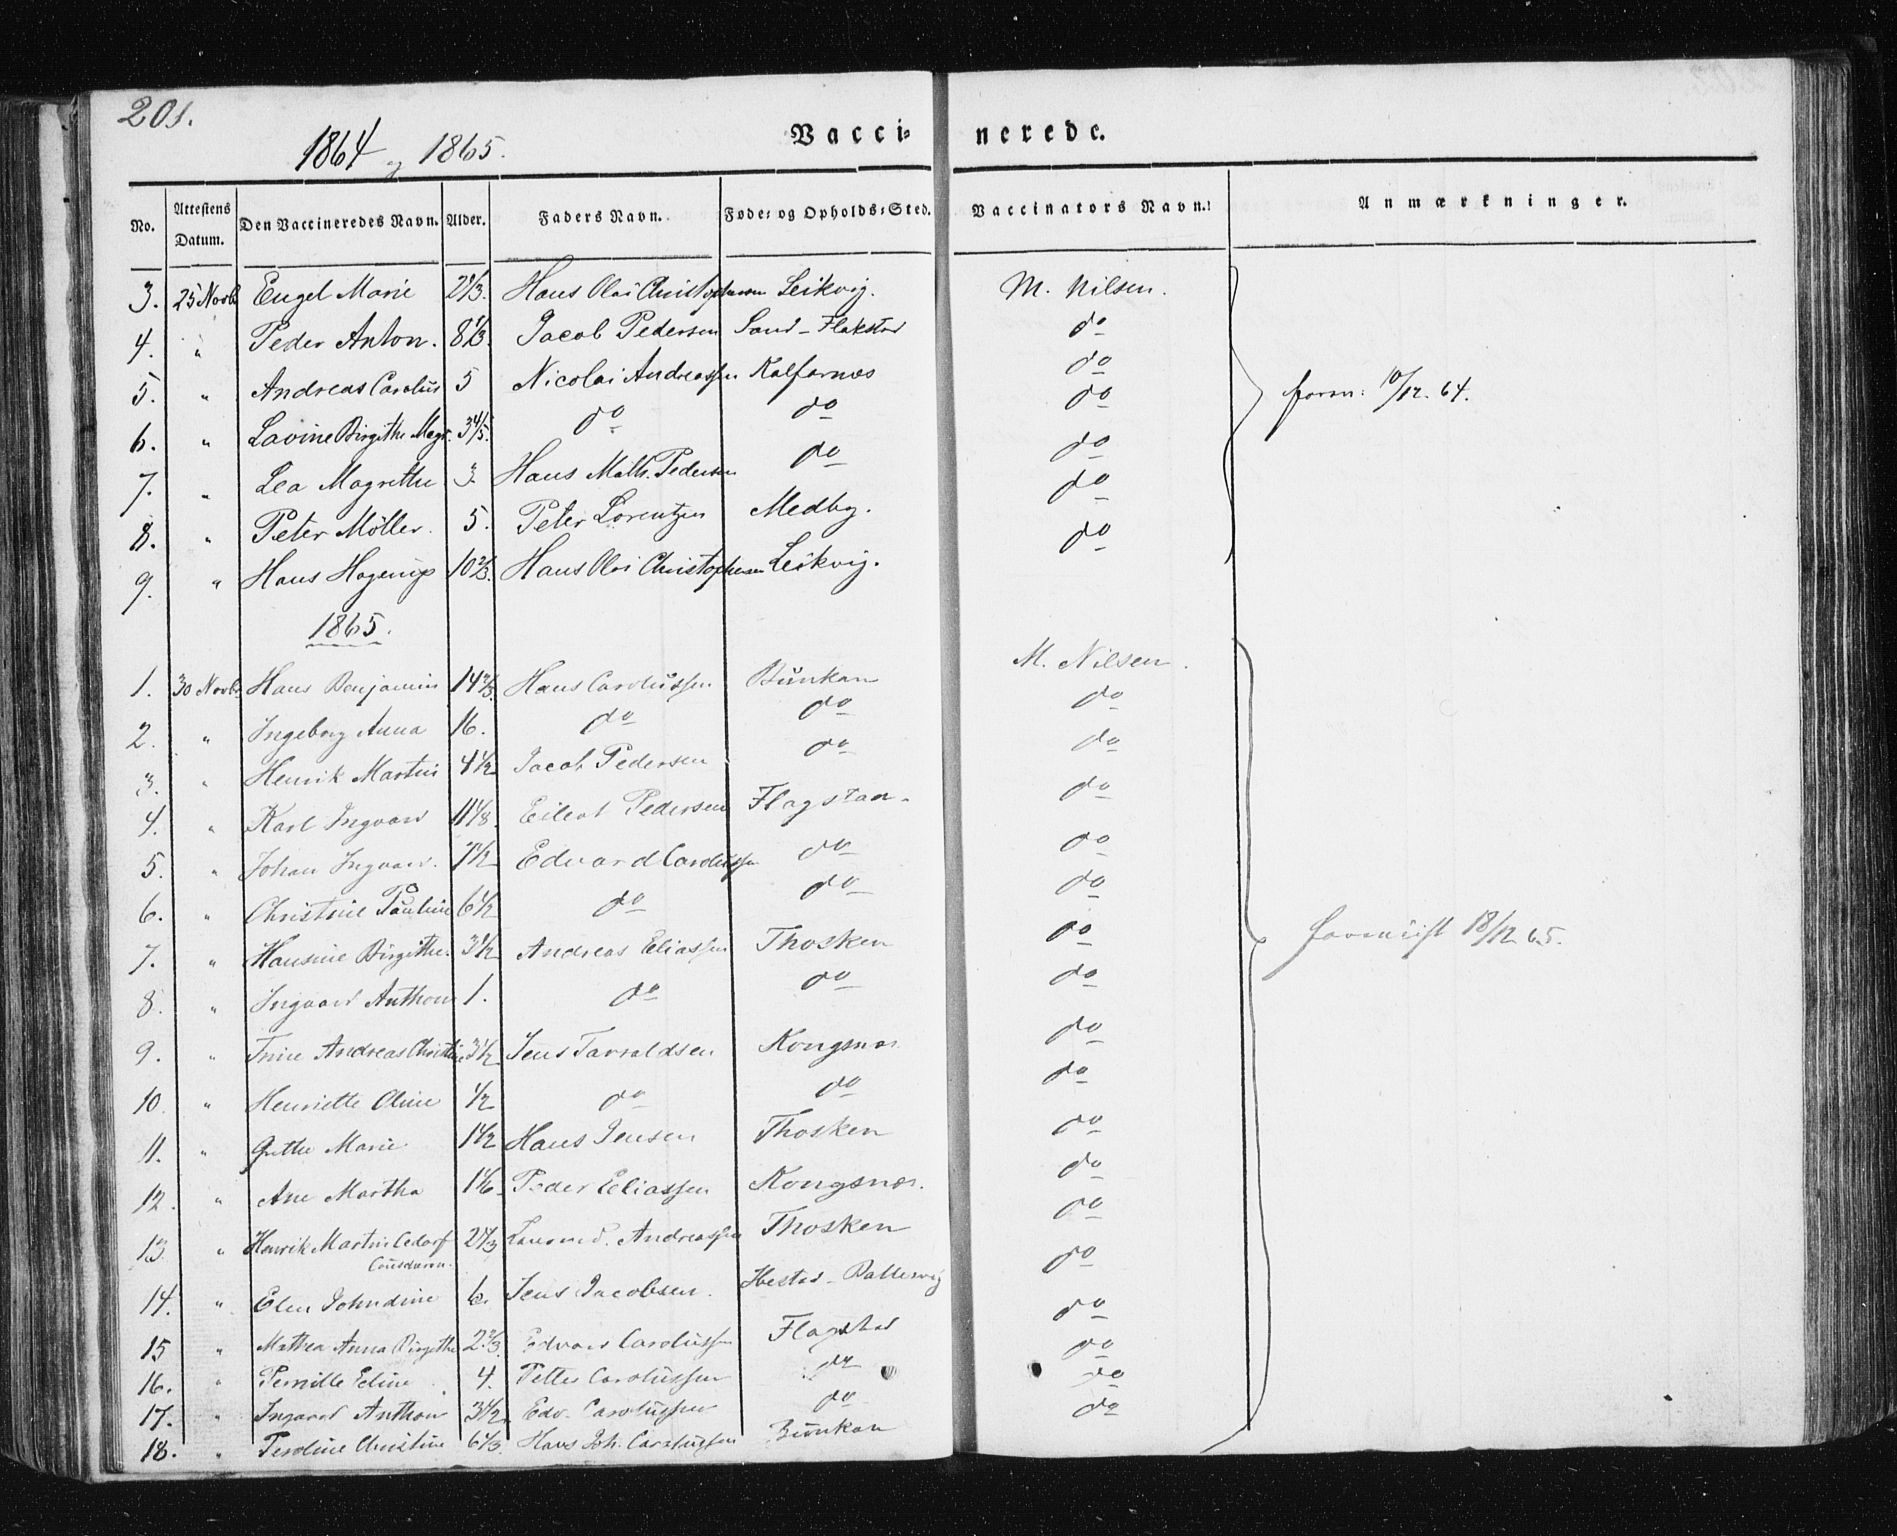 201.
1864 og 1865.
Vacci- nerede.
No. Attestens Datum. Den Vaccineredes Navn. Alder. Faders Navn. Føde- og Opholds-Sted. Vaccinators Navn. Anmærkninger.
3. 25 Novb. Engel Marie 2 1/3. Hans Olai Christophersen Leikvig. M. Nilsen.
4. " Peder Anton. 8 1/3. Jacob Pedersen Sand - Flakstad do
5. " Andreas Carolus 5 Nicolai Andreassen Kalfarnes do
6. " Lavine Birgithe Magr. 3 4/5. do do do
form: 10/12. 64.
7. " Lea Magrethe 3. Hans Math. Pedersen do do
8. " Peter Möller. 5. Peter Lorentzen Medby. do
9. " Hans Hagerup 10 2/3. Hans Olai Christophersen Leikvig. do
1865.
1. 30 Novb. Hans Benjamin 14 2/3. Hans Carolussen Bunkan M. Nilsen.
2. " Ingeborg Anna 16. do do do
3. " Henrik Martin 4 1/2 Jacob Pedersen do do
4. " Karl Ingvard 11 1/8. Eilert Pedersen Flagstad. do
5. " Johan Ingvard. 7 1/2 Edvard Carolussen do do
6. " Christine Pauline 6 1/2 do do do
7. " Hansine Birgithe. 3 1/2 Andreas Eliassen Thosken do
18/12 65.
8. " Ingvard Anthon 1. do do do
9. " Trine Andreas Christine 3 1/2 Jens Tarraldsen Kongsnes do
10. " Henriette Oline 1/2 do do do
11. " Grethe Marie 1 1/2 Hans Jensen Thosken do
12. " Ane Martha 1 1/6. Peder Eliassen Kongsnes. do
13. " Henrik Martin 2 1/3 Andreassen Thosken do
14. " Elen Johndine 6. Jens Jacobsen. do
15 " Mathea Anna Birgithe 2 2/3. Edvard Carolussen Flagstad do
16. " Pernille Edine 4. Petter Carolussen do do
17. " Ingvard Anthon 3 1/2 Edv. Carolussen do do
18. " Peroline Christine 6 1/3. Hans Joh. Carolussen Bunkan do